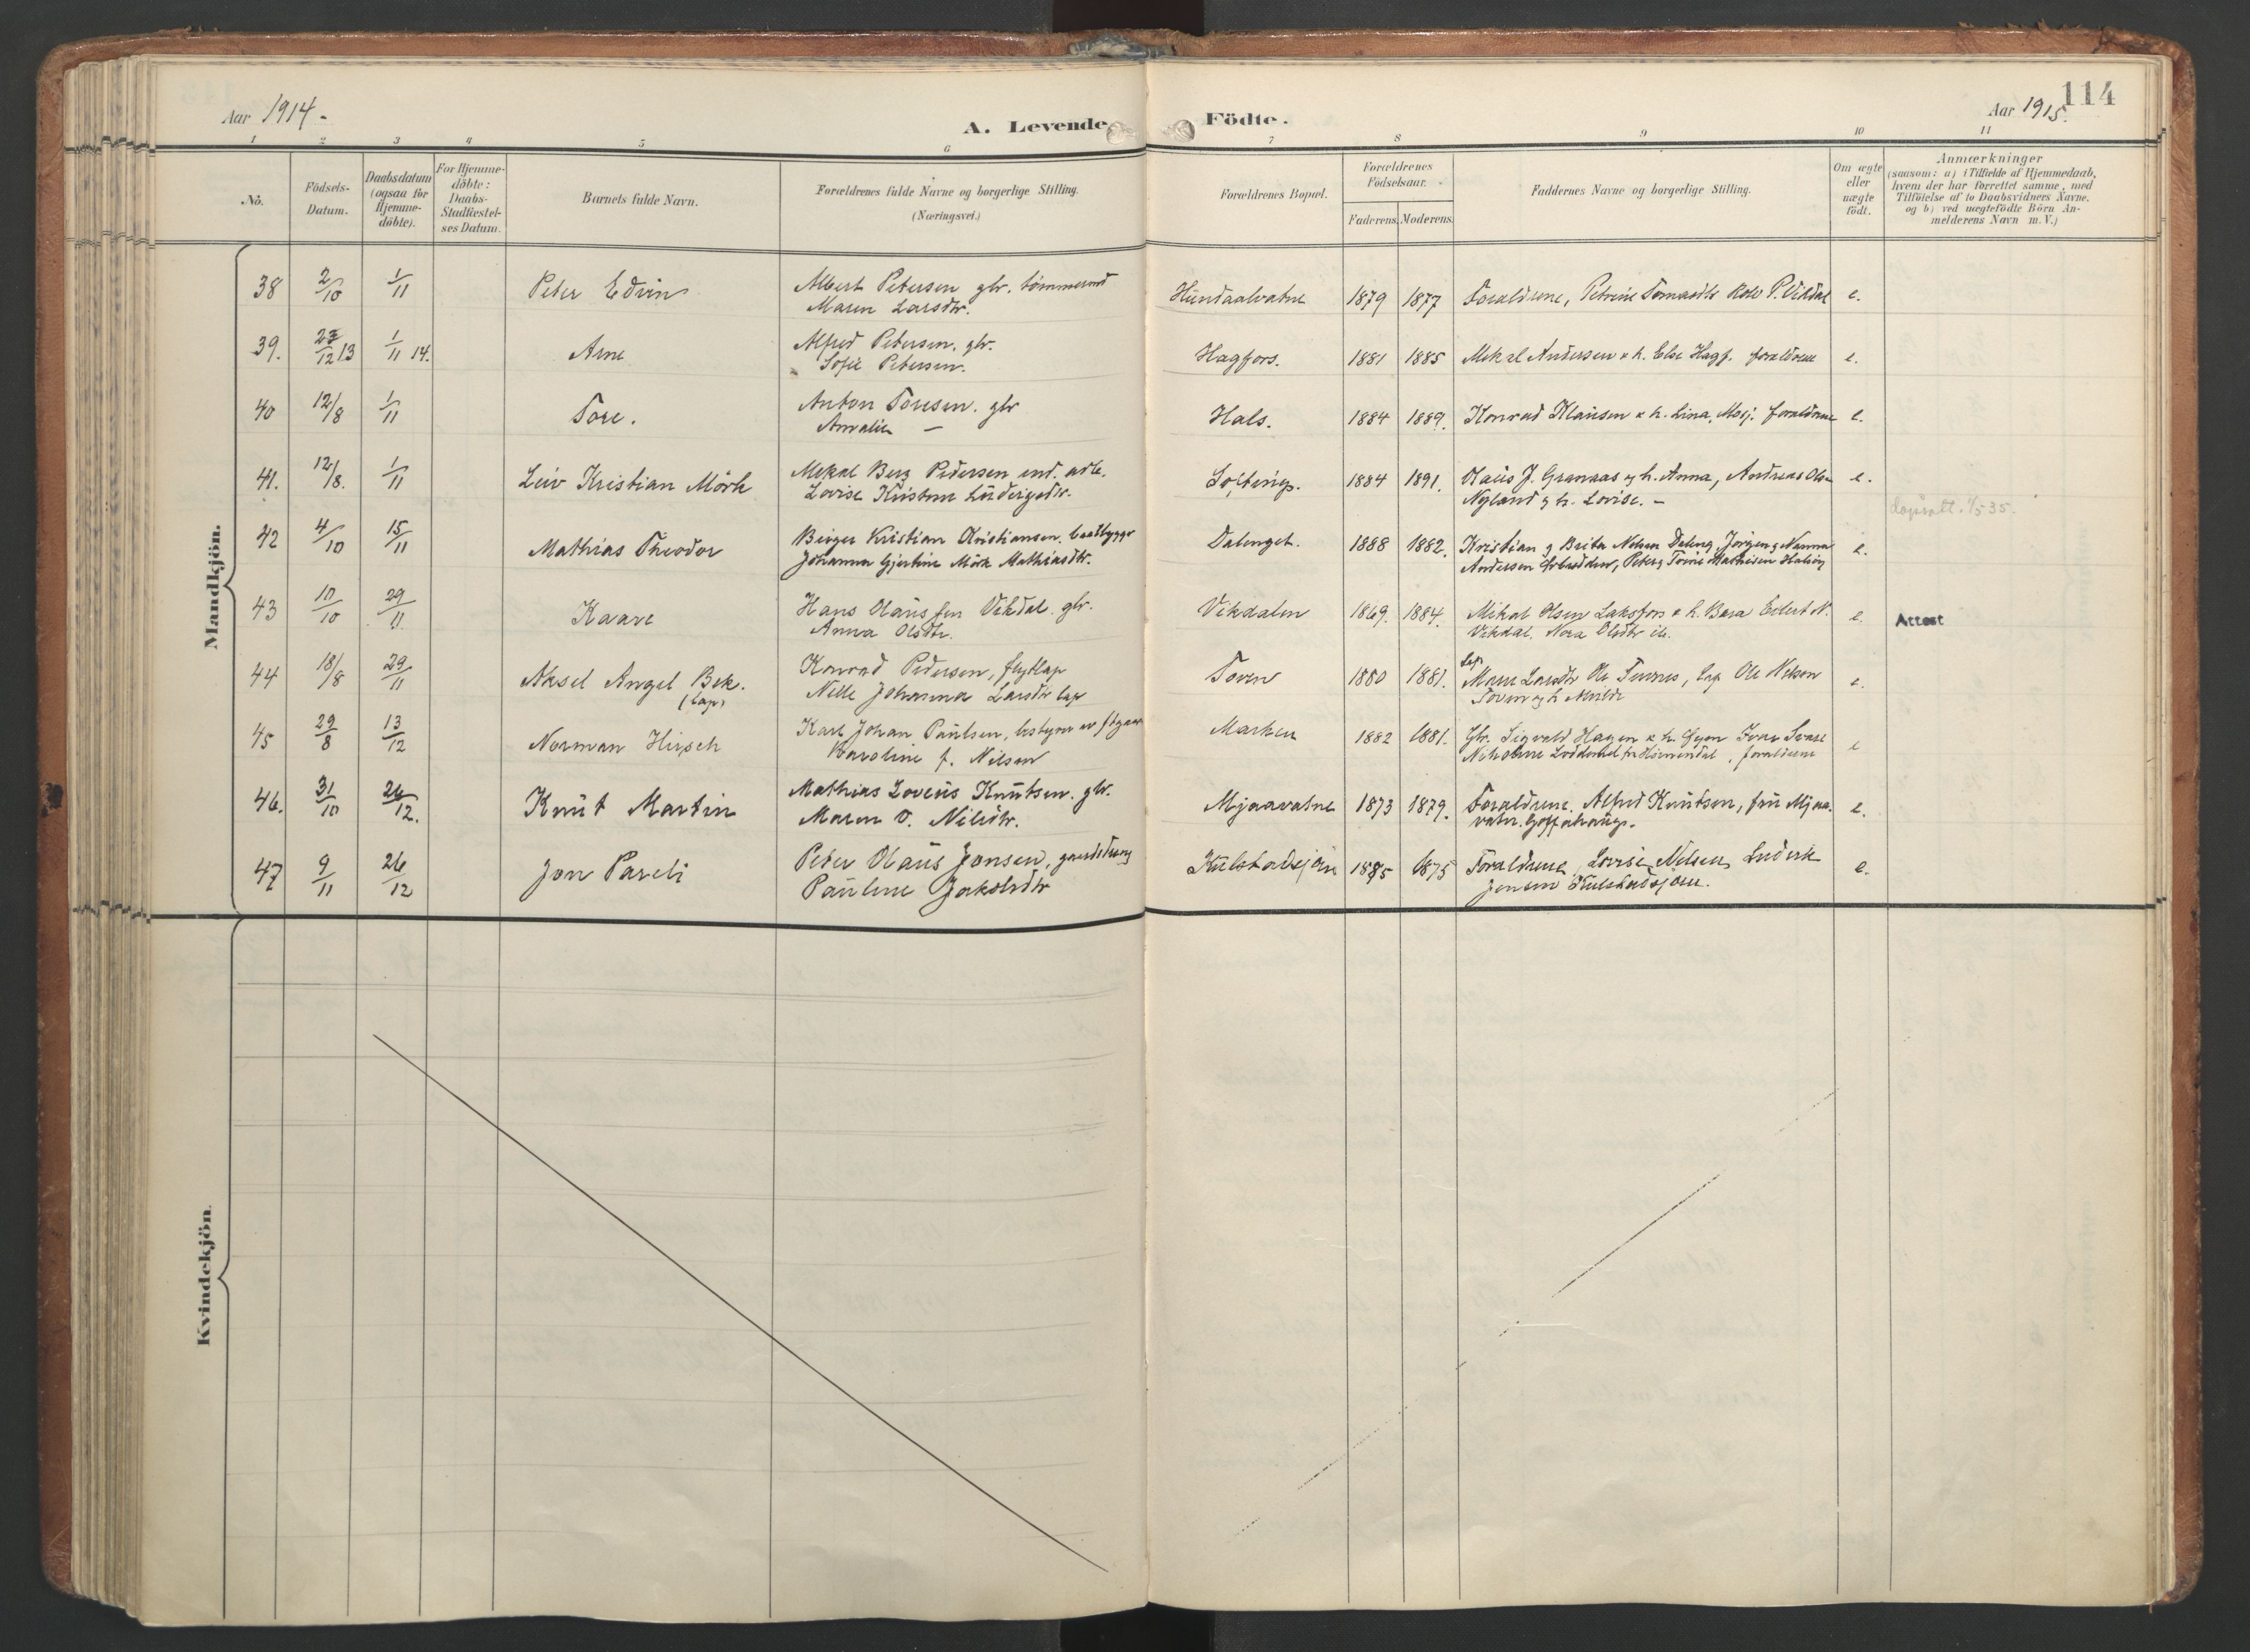 114
Aar 1914.
A. Levende
Födte.
Aar 1915.
1 2 3 4 5 6 7 8 9 10 11
No.
Födsels-
Datum.
Daabsdatum
(ogsaa for
Hjemme-
döbte).
For Hjemme-
döbte:
Daabs-
Stadfæstel-
ses Datum.
Barnets fulde Navn.
Forældrenes fulde Navne og borgerlige Stilling.
(Næringsvei.)
Forældrenes Bopæl.
Forældrenes
Födselsaar.
Faderens. Moderens.
Faddernes Navne og borgerlige Stilling.
Om ægte
eller
uægte
födt.
Anmærkninger
(saasom: a) i Tilfælde af Hjemmedaab,
hvem der har forrettet samme, med
Tilföielse af to Daabsvidners Navne,
og b) ved uægtefödte Börn An-
melderens Navn m. V.)
Mandkjön.
38 2/10 1/11 Peter Edvin Albert Petersen gbr. tömmermd Hundaalvatne 1879 1877 Foraldrene, Petrine Tomasdtr Rolv P. Vikdal e.
Maren Larsdtr.
39. 12 13 1/11 14. Arne Alfred Petersen. gbr. Hagfors. 1881 1885 Mekal Andersen & h. Else Hagf. foraldrene e.
Sofie Petersen.
40 12/8 1/11 Tore. Anton Toresen. gbr Hals. 1884 1889. Konrad Klausen & h. Lina, Mosj. foraldrene e.
Amalie —
41. 12/8. 1/11 Leiv Kristian Mörk Mekal Berg Pedersen Softing. 1884 1891. Olaus J. Granaas og h. Anna, Andreas Olsen e.
Lovise Kristine Nyland og h. Lovise. —
42 4/10 15/11 Mathias Theodor Birger Kristian Kristiansen. baatbygger Dalenget. 1888 1882. Kristian og Berta Nelsen Daleng, Jörgen og Nanna e.
Johanna Gjertine Mörk Mathiasdtr. Andersen Peter og Trine Mathisen Halsöy
1/5 35.
43 10/10 29/11 Kaare Hans Olaus Vikdal gbr. Vikdalen 1869. 1884. Mikal Olsen Laksfors & h. Bera Edert N. e. Attest
Anna Olsdtr. Vikdal. Nora Olsdtr ib.
44 18/8 29/11 Aksel Angel Bek. Konrad Pedersen, flytlap Toven 1880 1881. Lap Maren Larsdtr Ole Lap Ole Nelsen e.
(Lap) Nelle Johanna Larsdtr lap Toven og h
45 29/8 13/12 Norman Hirsch Karl Johan Paulsen, bestyrer Marken 1882 1881. Gbr. Sigvald Hagen & h. Ivar Svare e
Karoline f. Nilsen foraldrene
46. 31/10 26/12. Knut Martin Mathias Zoveus Knutsen. gbr. Mjaavatne 1873 1879. Foraldrene, Alfred Knutsen, fru Mjaa- e.
Maren O. Nilsdtr. vatn.
47 9/11 26/12 Jon Pareli Peter Olaus Jonsen, gaardsdreng Kulstadsjöen 1885 1875 Foraldrene, Lovise Nelsen, Luderk e.
Pauline Jakobsdtr Jensen Kulstadsjöen.
Kvindekjön.